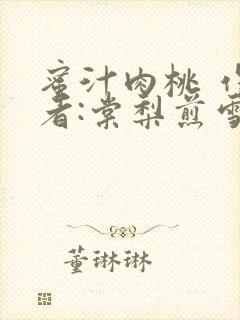 蜜汁肉桃
者:棠梨煎
董琳琳